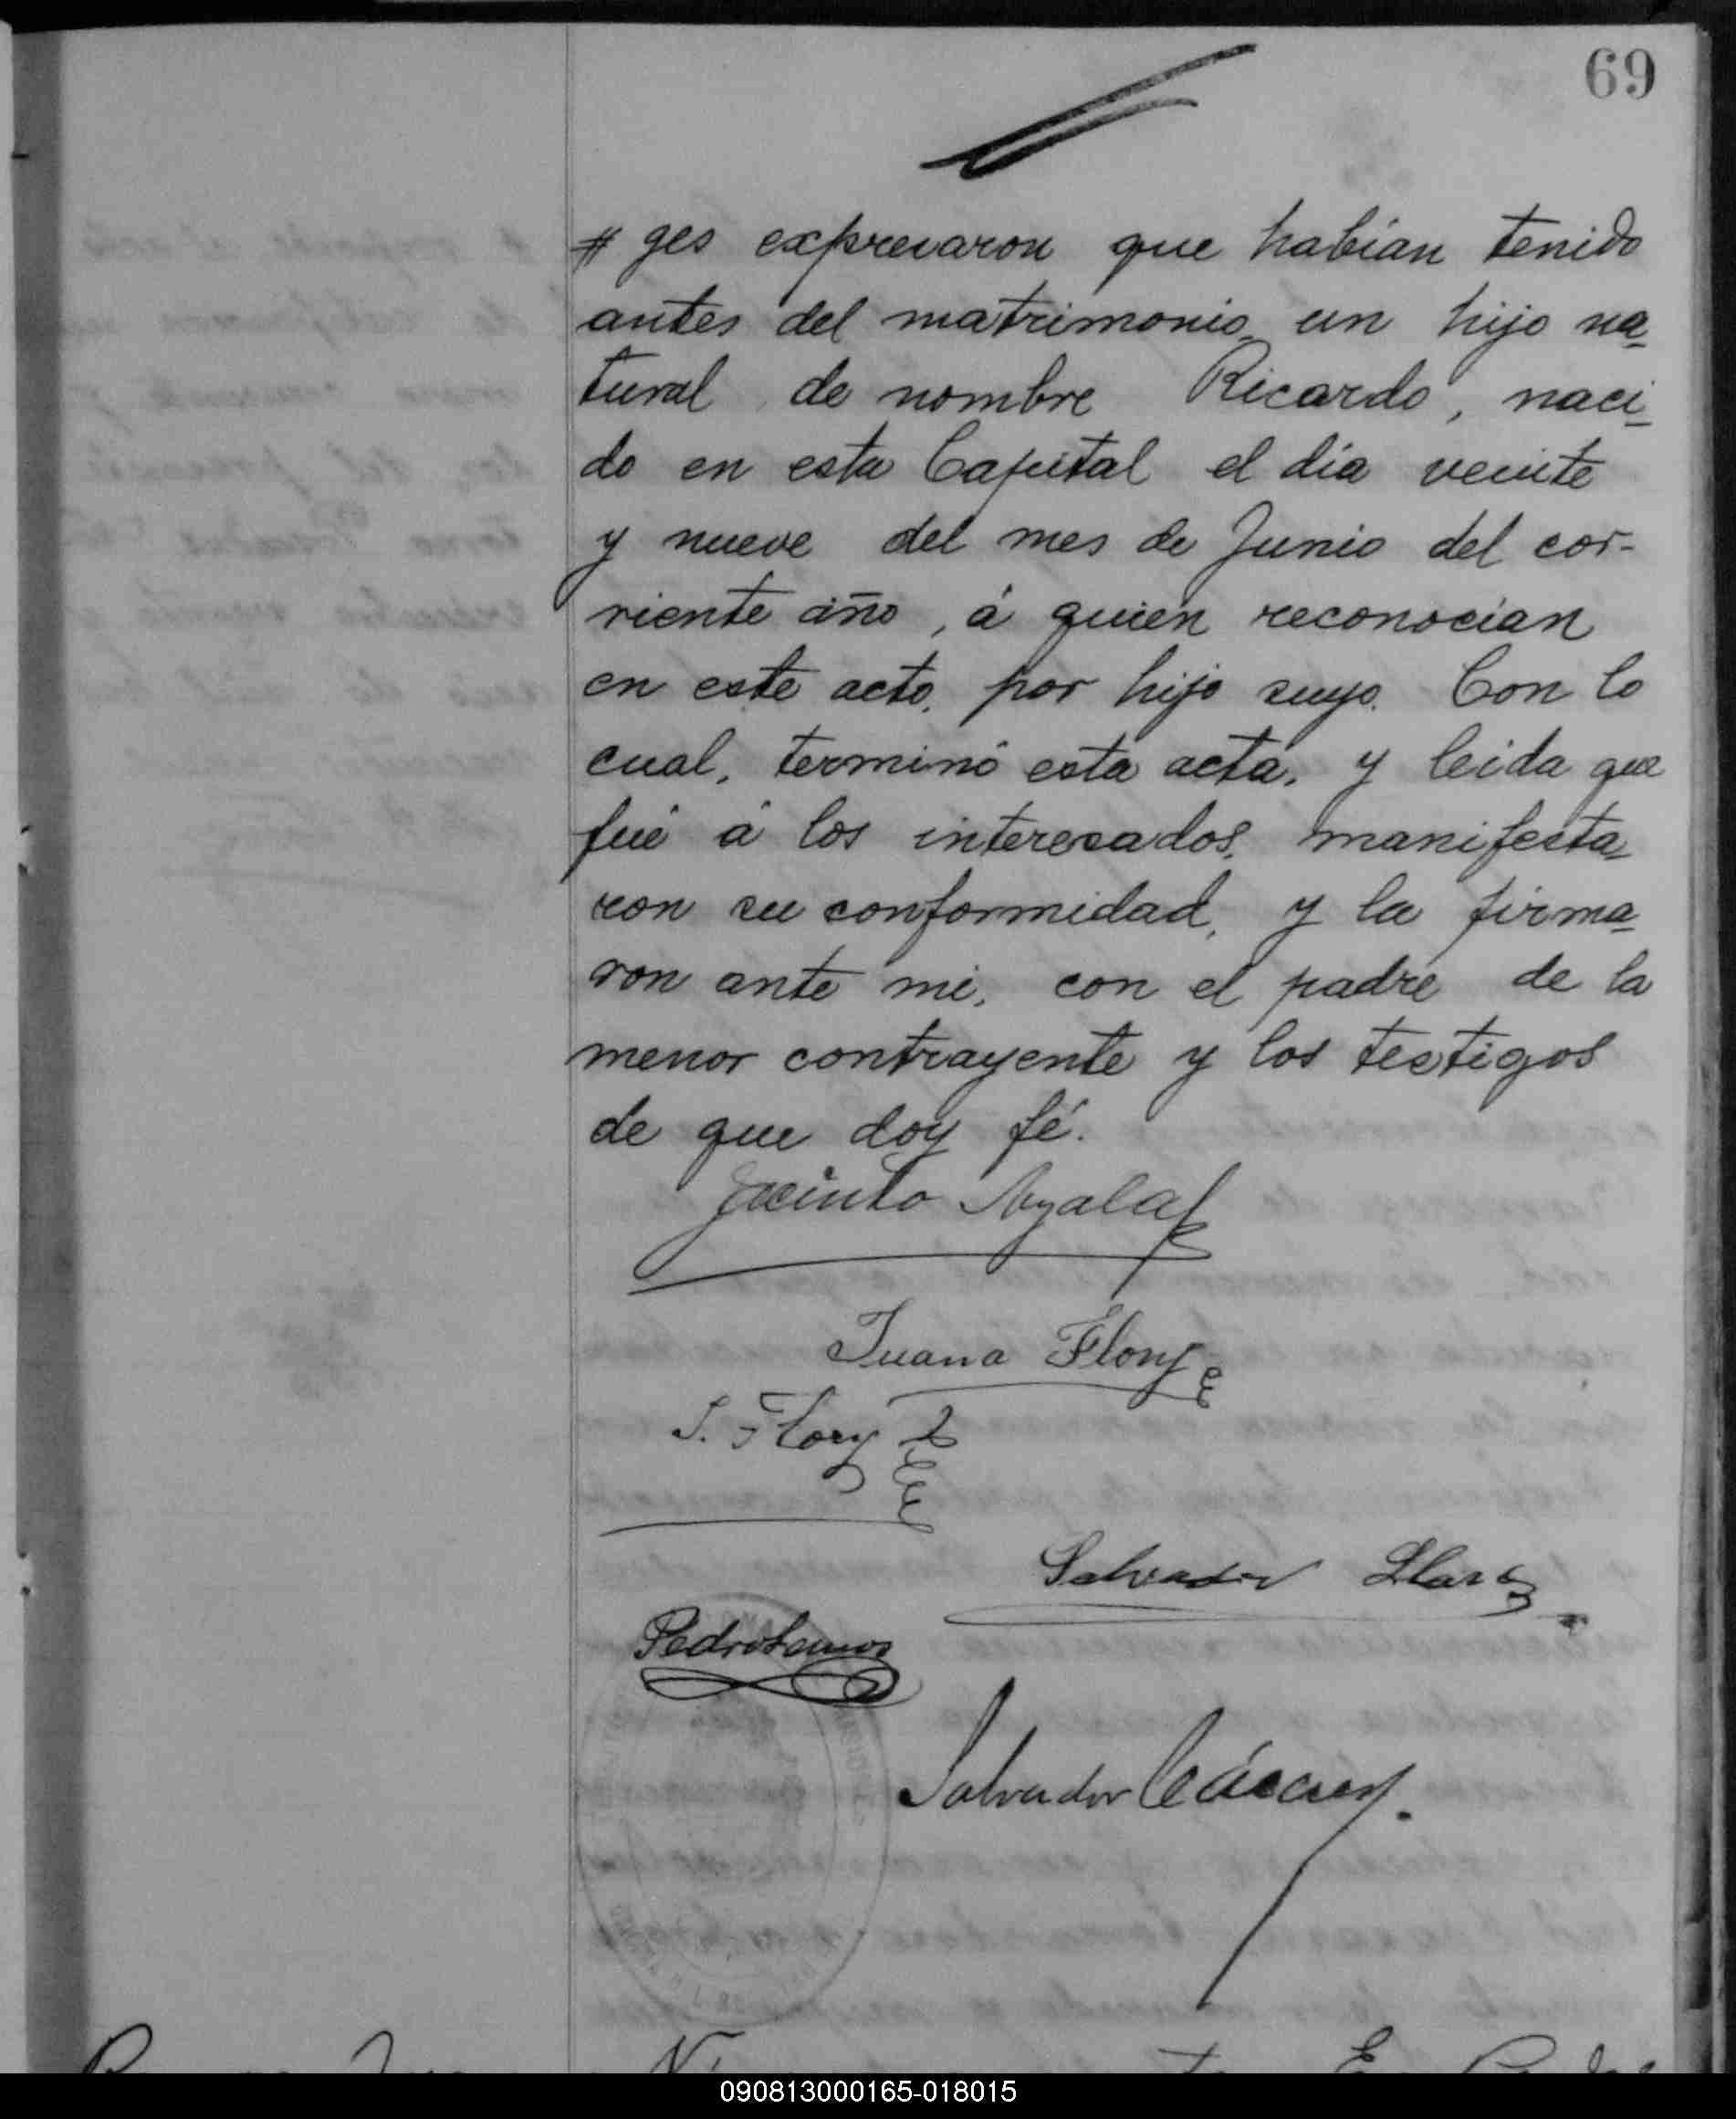 69
# ges expresaron que habían tenido
antes del matrimonio un hijo na-
tural de nombre Ricardo, naci-
do en esta Capital el día veinte
y nueve del mes de Junio del cor-
riente año, á quien reconocían
en este acto, por hijo suyo. Con lo
cual, terminó esta acta, y leida que
fué á los interesados, manifesta-
ron su conformidad, y la firma-
ron ante mi, con el padre de la
menor contrayente y los testigos
de que doy fé.
Jacinto Ayala
Juana Flory
J. Flory
Salvador
Pedro Lamas
Salvador Cáceres.
090813000165-018015